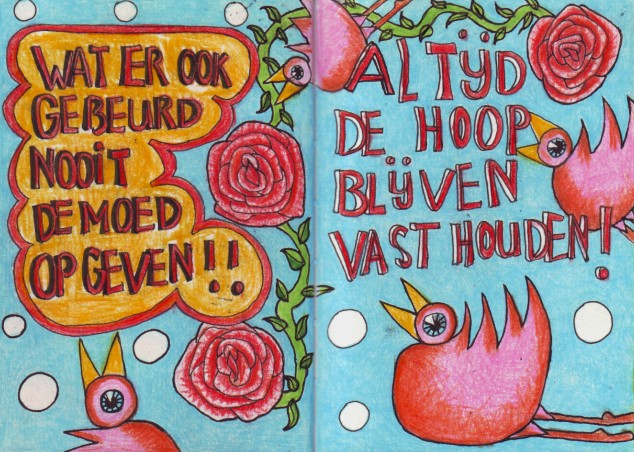 WAT ER OOK
GEBEURD
NOOiT
DE MOED
OPGEVEN!!
ALTIJD
DE HOOP
BLIJVEN
VAST HOUDEN!